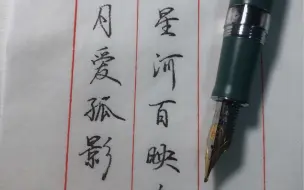 星河百映
月爱孤影